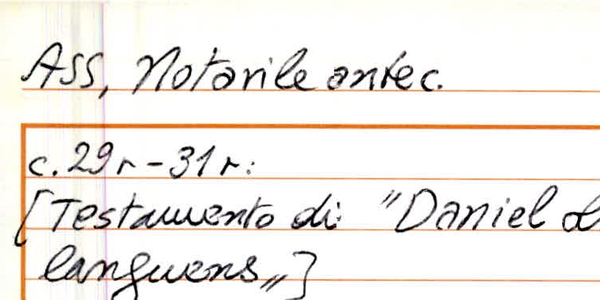 ASS, Notarile antec.
c. 29 r - 31 r:
[Testamento di "Daniel
languens„]